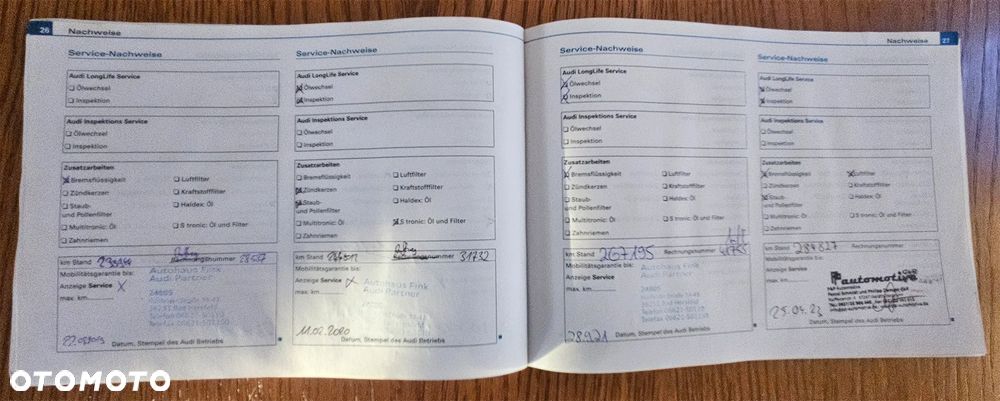 26 Nachweise
Service-Nachweise
Audi LongLife Service
Ölwechsel
Inspektion
Audi Inspektions Service
Ölwechsel
Inspektion
Zusatzarbeiten
Bremsflüssigkeit
Luftfilter
Zündkerzen
Kraftstofffilter
Staub-
und Pollenfilter
Haldex: Öl
Multitronic: Öl
S tronic: Öl und Filter
Zahnriemen
km Stand
Mobilitätsgarantie bis:
Autohaus Fink
Audi Partner
Anzeige Service X
max. km
Datum, Stempel des Audi Betriebs
Service-Nachweise
Audi LongLife Service
Ölwechsel
Inspektion
Audi Inspektions Service
Ölwechsel
Inspektion
Zusatzarbeiten
Bremsflüssigkeit
Luftfilter
Zündkerzen
Kraftstofffilter
Staub-
und Pollenfilter
Haldex: Öl
Multitronic: Öl
S tronic: Öl und Filter
Zahnriemen
km Stand 31732
Mobilitätsgarantie bis:
Autohaus Fink
Audi Partner
Anzeige Service X
max. km
11.02.2020
Datum, Stempel des Audi Betriebs
Nachweise 27
Service-Nachweise
Audi LongLife Service
Ölwechsel
Inspektion
Audi Inspektions Service
Ölwechsel
Inspektion
Zusatzarbeiten
Bremsflüssigkeit
Luftfilter
Zündkerzen
Kraftstofffilter
Staub-
und Pollenfilter
Haldex: Öl
Multitronic: Öl
S tronic: Öl und Filter
Zahnriemen
km Stand 267195 Rechnungsnummer
Mobilitätsgarantie bis:
Autohaus Fink
Audi Partner
Anzeige Service
max. km
28.9.21
Datum, Stempel des Audi Betriebs
Service-Nachweise
Audi LongLife Service
Ölwechsel
Inspektion
Audi Inspektions Service
Ölwechsel
Inspektion
Zusatzarbeiten
Bremsflüssigkeit
Luftfilter
Zündkerzen
Kraftstofffilter
Staub-
und Pollenfilter
Haldex: Öl
Multitronic: Öl
S tronic: Öl und Filter
Zahnriemen
km Stand 284827 Rechnungsnummer
Mobilitätsgarantie bis:
automotive
Anzeige Service
max. km
25.04.23
Datum, Stempel des Audi Betriebs
OTOMOTO